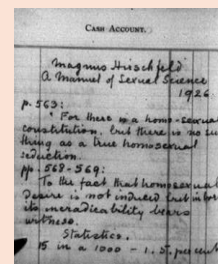 CASH ACCOUNT.
Magnus Hirschfeld
A Manuel of Sexual Science
1926
p. 563:
" For there is a homo-sexual
constitution, but there is no su
thing as a true homosexual
seduction.
pp. 568-569:
To the fact that homosexual
desire is not induced but inbor
its ineradicability bears
witness.
Statistics.
15 in a 1000 - 1.5 per cent